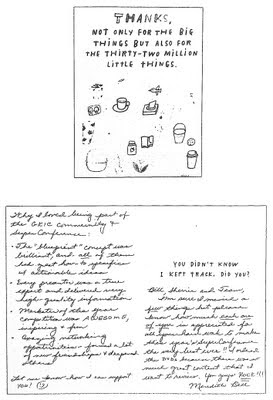 THANKS,
NOT ONLY FOR THE BIG
THINGS BUT ALSO FOR
THE THIRTY-TWO MILLION
LITTLE THINGS.
Why I loved being part of
the GKIC Community &
SuperConference:
• The "blueprint" concept was
brilliant, and all of them
had great how to specifics
& actionable ideas
• Every presenter was a true
expert and delivered very
high quality information
• Marketers of the Year
competition was AWESOME,
inspiring & fun
• Amazing networking
opportunities - formed a lot
of new friendships & deepened
others
Let me know how I can support
you!
YOU DIDN'T KNOW
I KEPT TRACK, DID YOU?
Bill, and Team,
I'm sure I missed a
few things but please
know how much each one
of you is appreciated for
all your hard work to make
this year's SuperConference
the very best ever!! I
the because there was so
much great content that I
want to review. You guys ROCK!!!
Meredith Bell